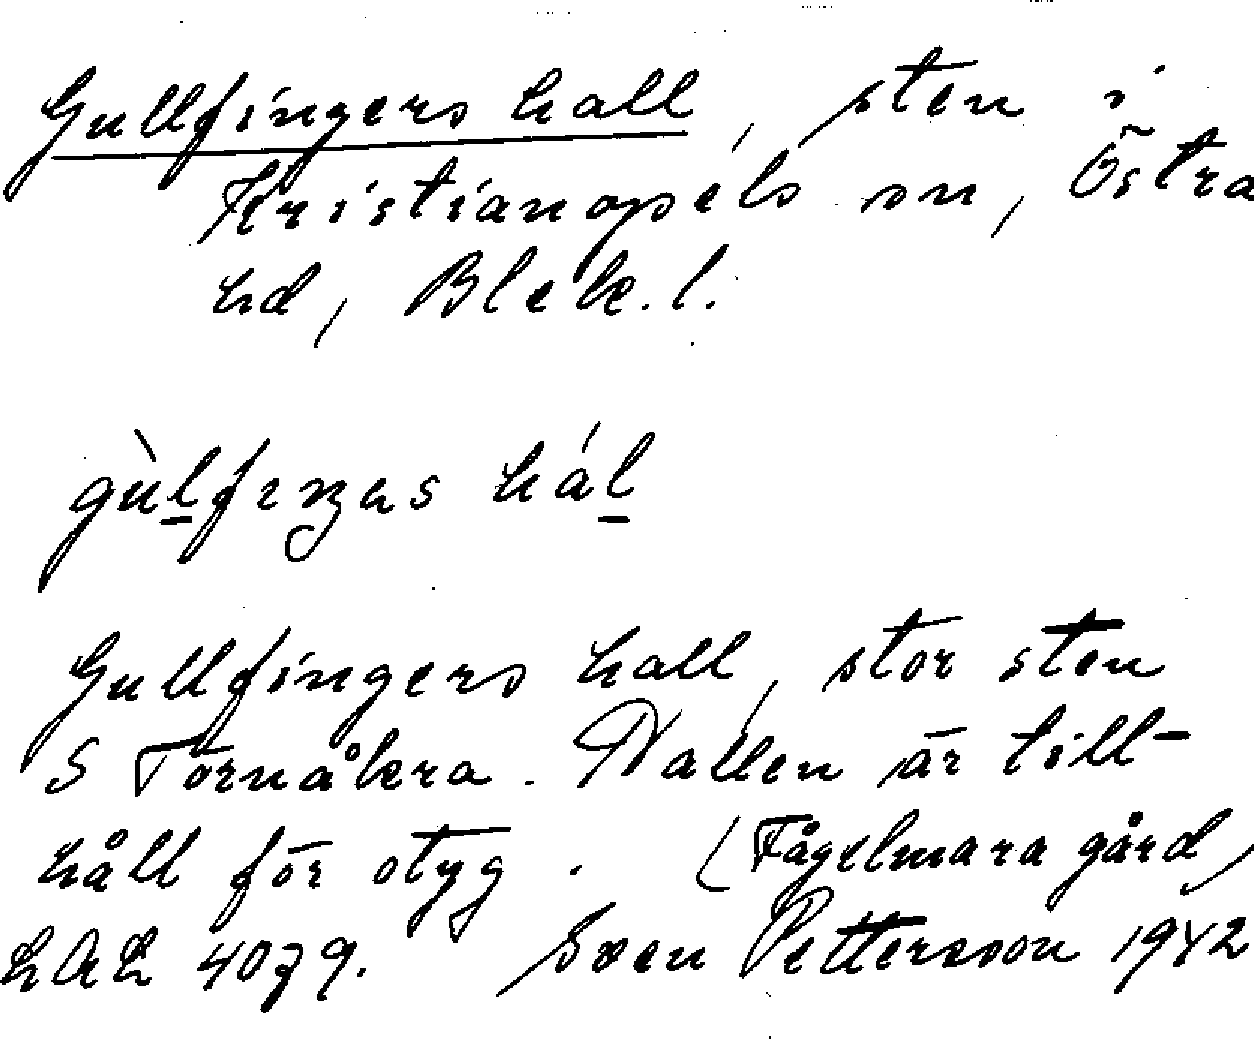 Gullfingers hall, sten i
Kristianopels sn, Östra
hd, Blek. l.
gùlfiŋas hál
Gullfingers hall, stor sten
S Törnåkra. Hallen är till-
håll för otyg. (Fågelmara gård)
LAL 4079. Sven Pettersson 1942